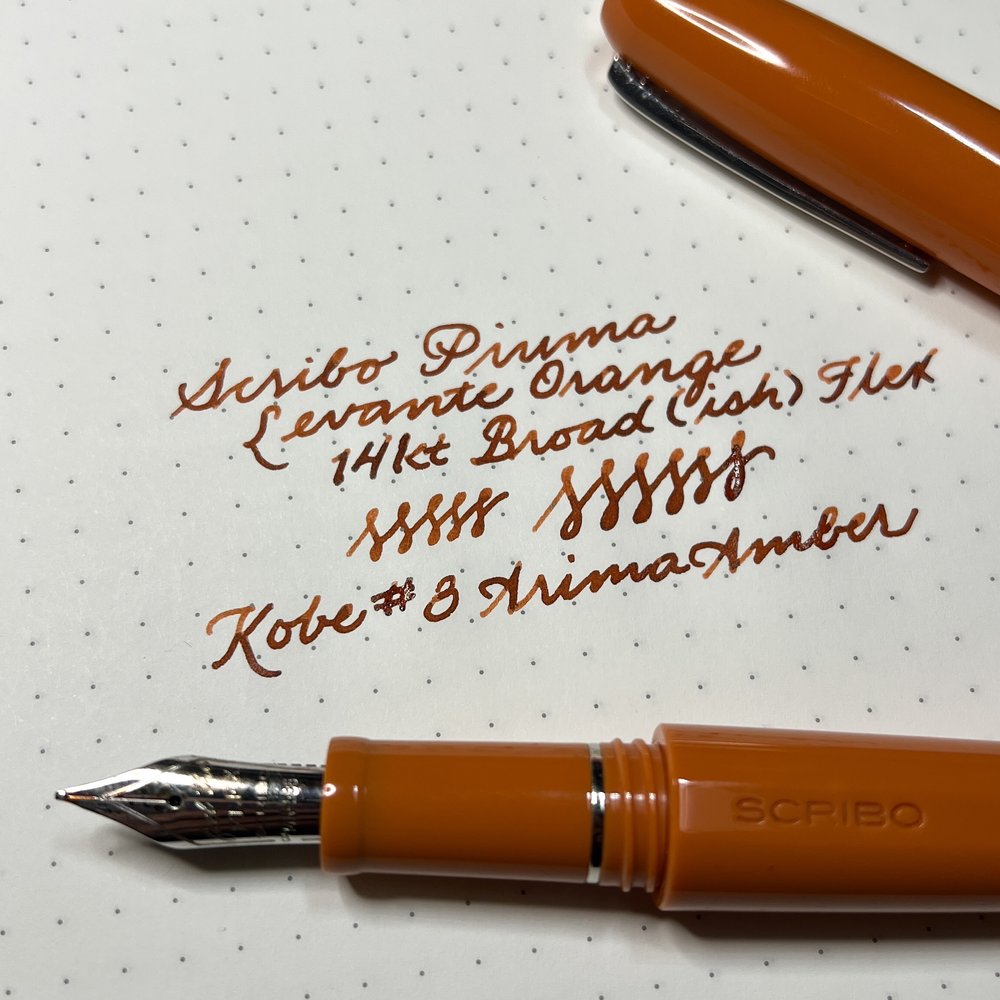 Scribo Piuma
Levante Orange
14kt Broad (ish) Flex
Kobe #3 Arima Amber
SCRIBO